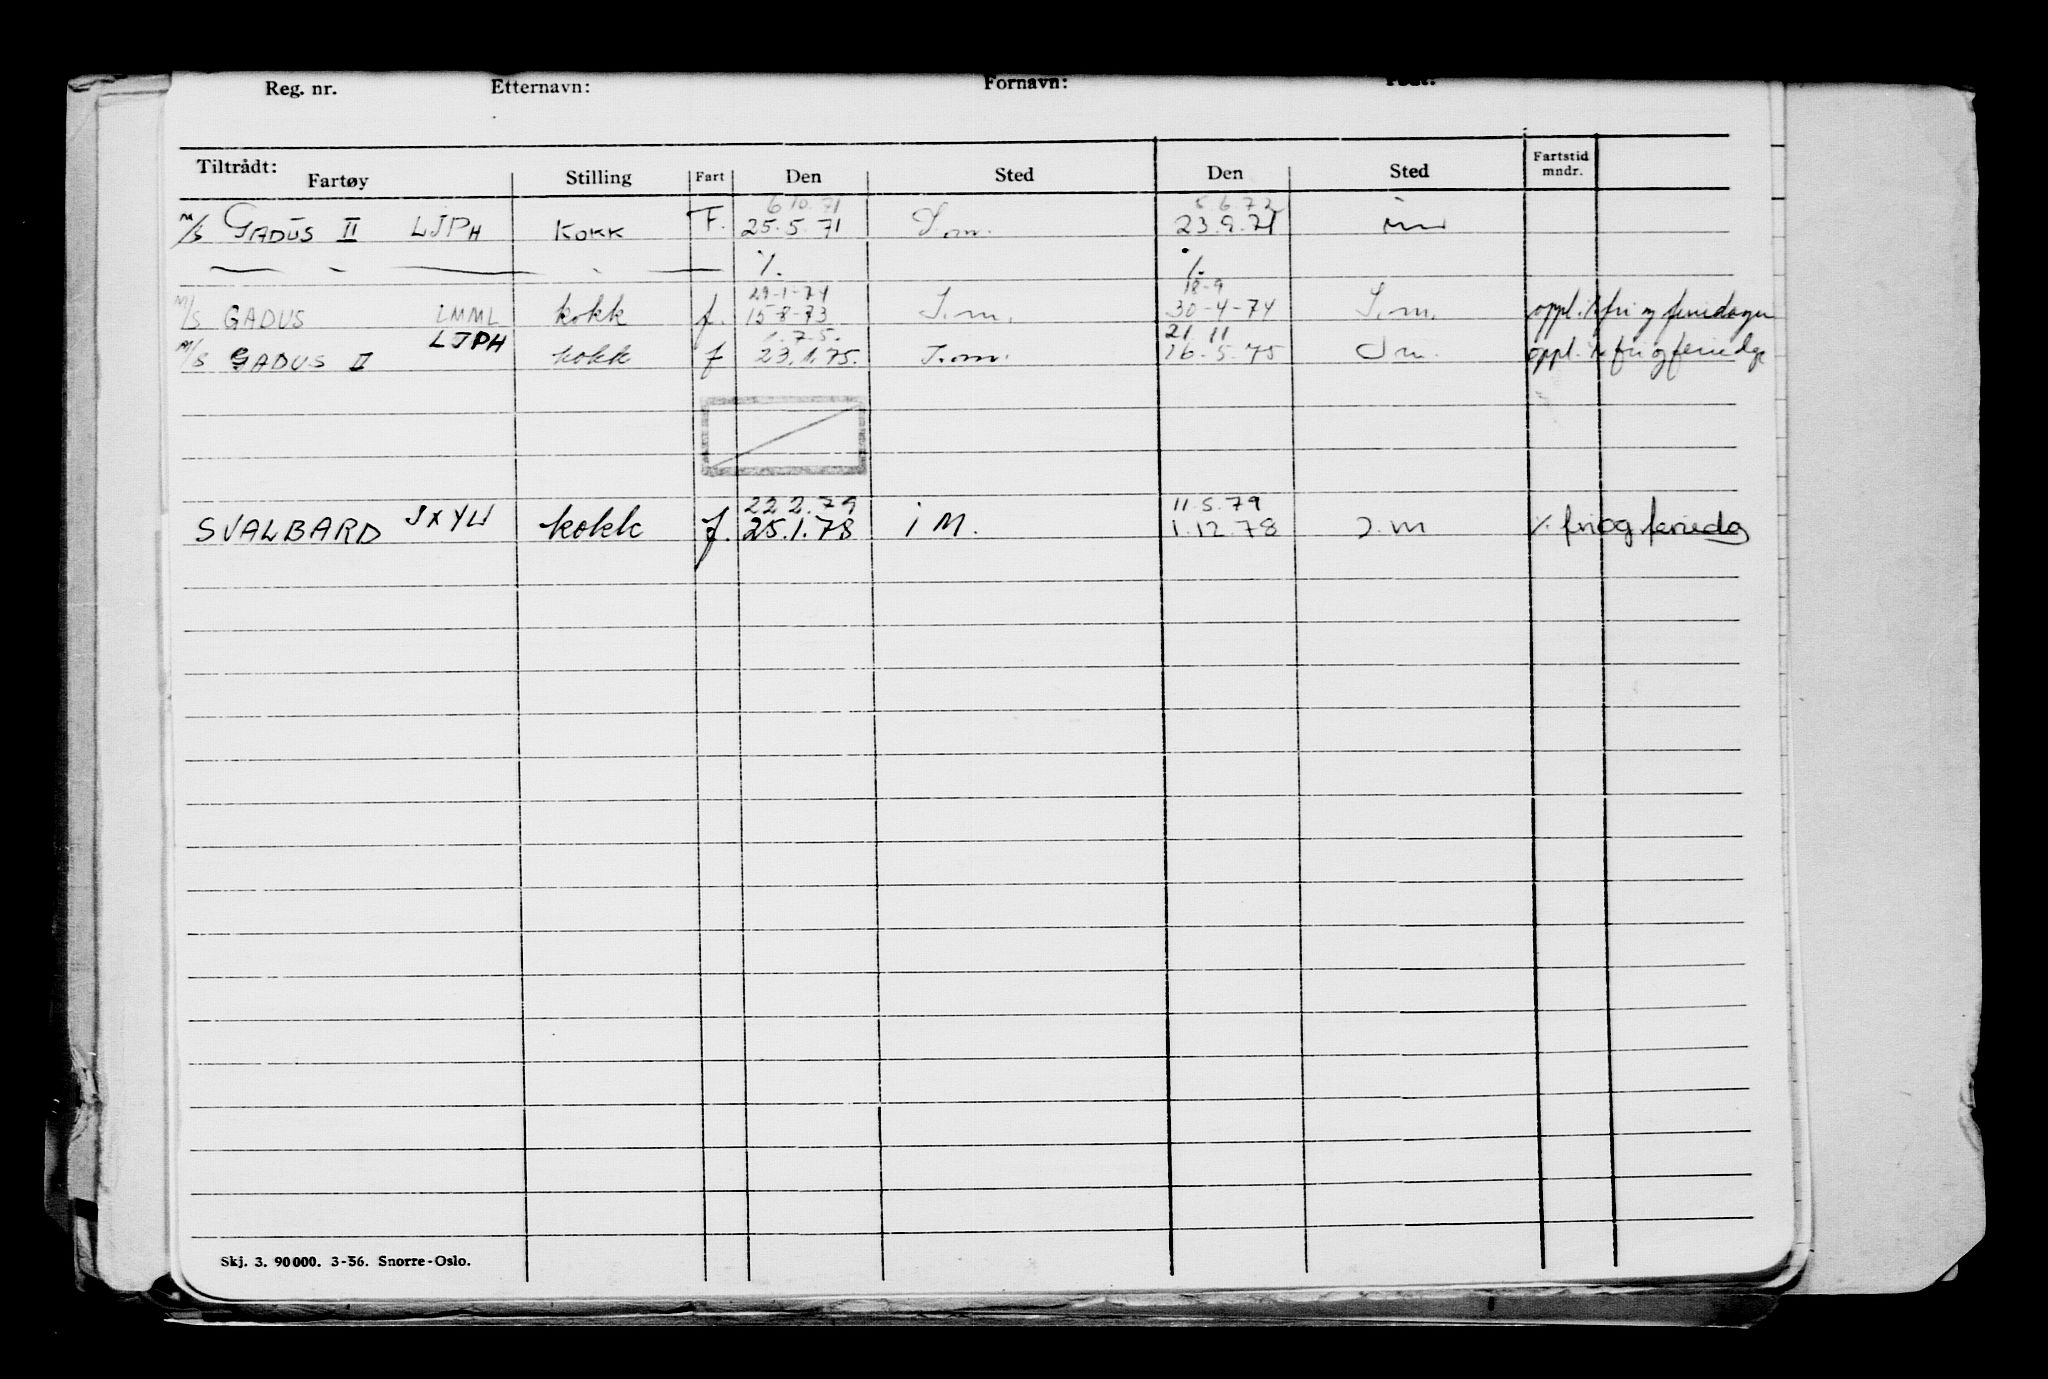 Reg. nr. Etternavn: Fornavn: Født:
Tiltrådt: Fartøy Stilling Fart Den Sted Den Sted Fartstid mndr.
6.10.71 5.6.72
M/S GADUS II LJPH KOKK F. 25.5.71 I.m. 23.9.71 im
— " — " — ·/. ·/.
29-1-74 18-9
M/S GADUS LMML kokk f. 15-8-73 I.m. 30-4-74 I.m. oppl. ·/. fri og feriedager
1.7.5. 21 11
M/S GADUS II LJPH kokk f 23.1.75. I.m. 16-5-75 I m. oppl. ·/. fri og feriedg
22 2.79 11.5.79
SVALBARD JXYU kokk f. 25.1.78 i M. 1.12.78 J.m ·/. fri og feriedg
Skj. 3. 90 000. 3-56. Snorre-Oslo.